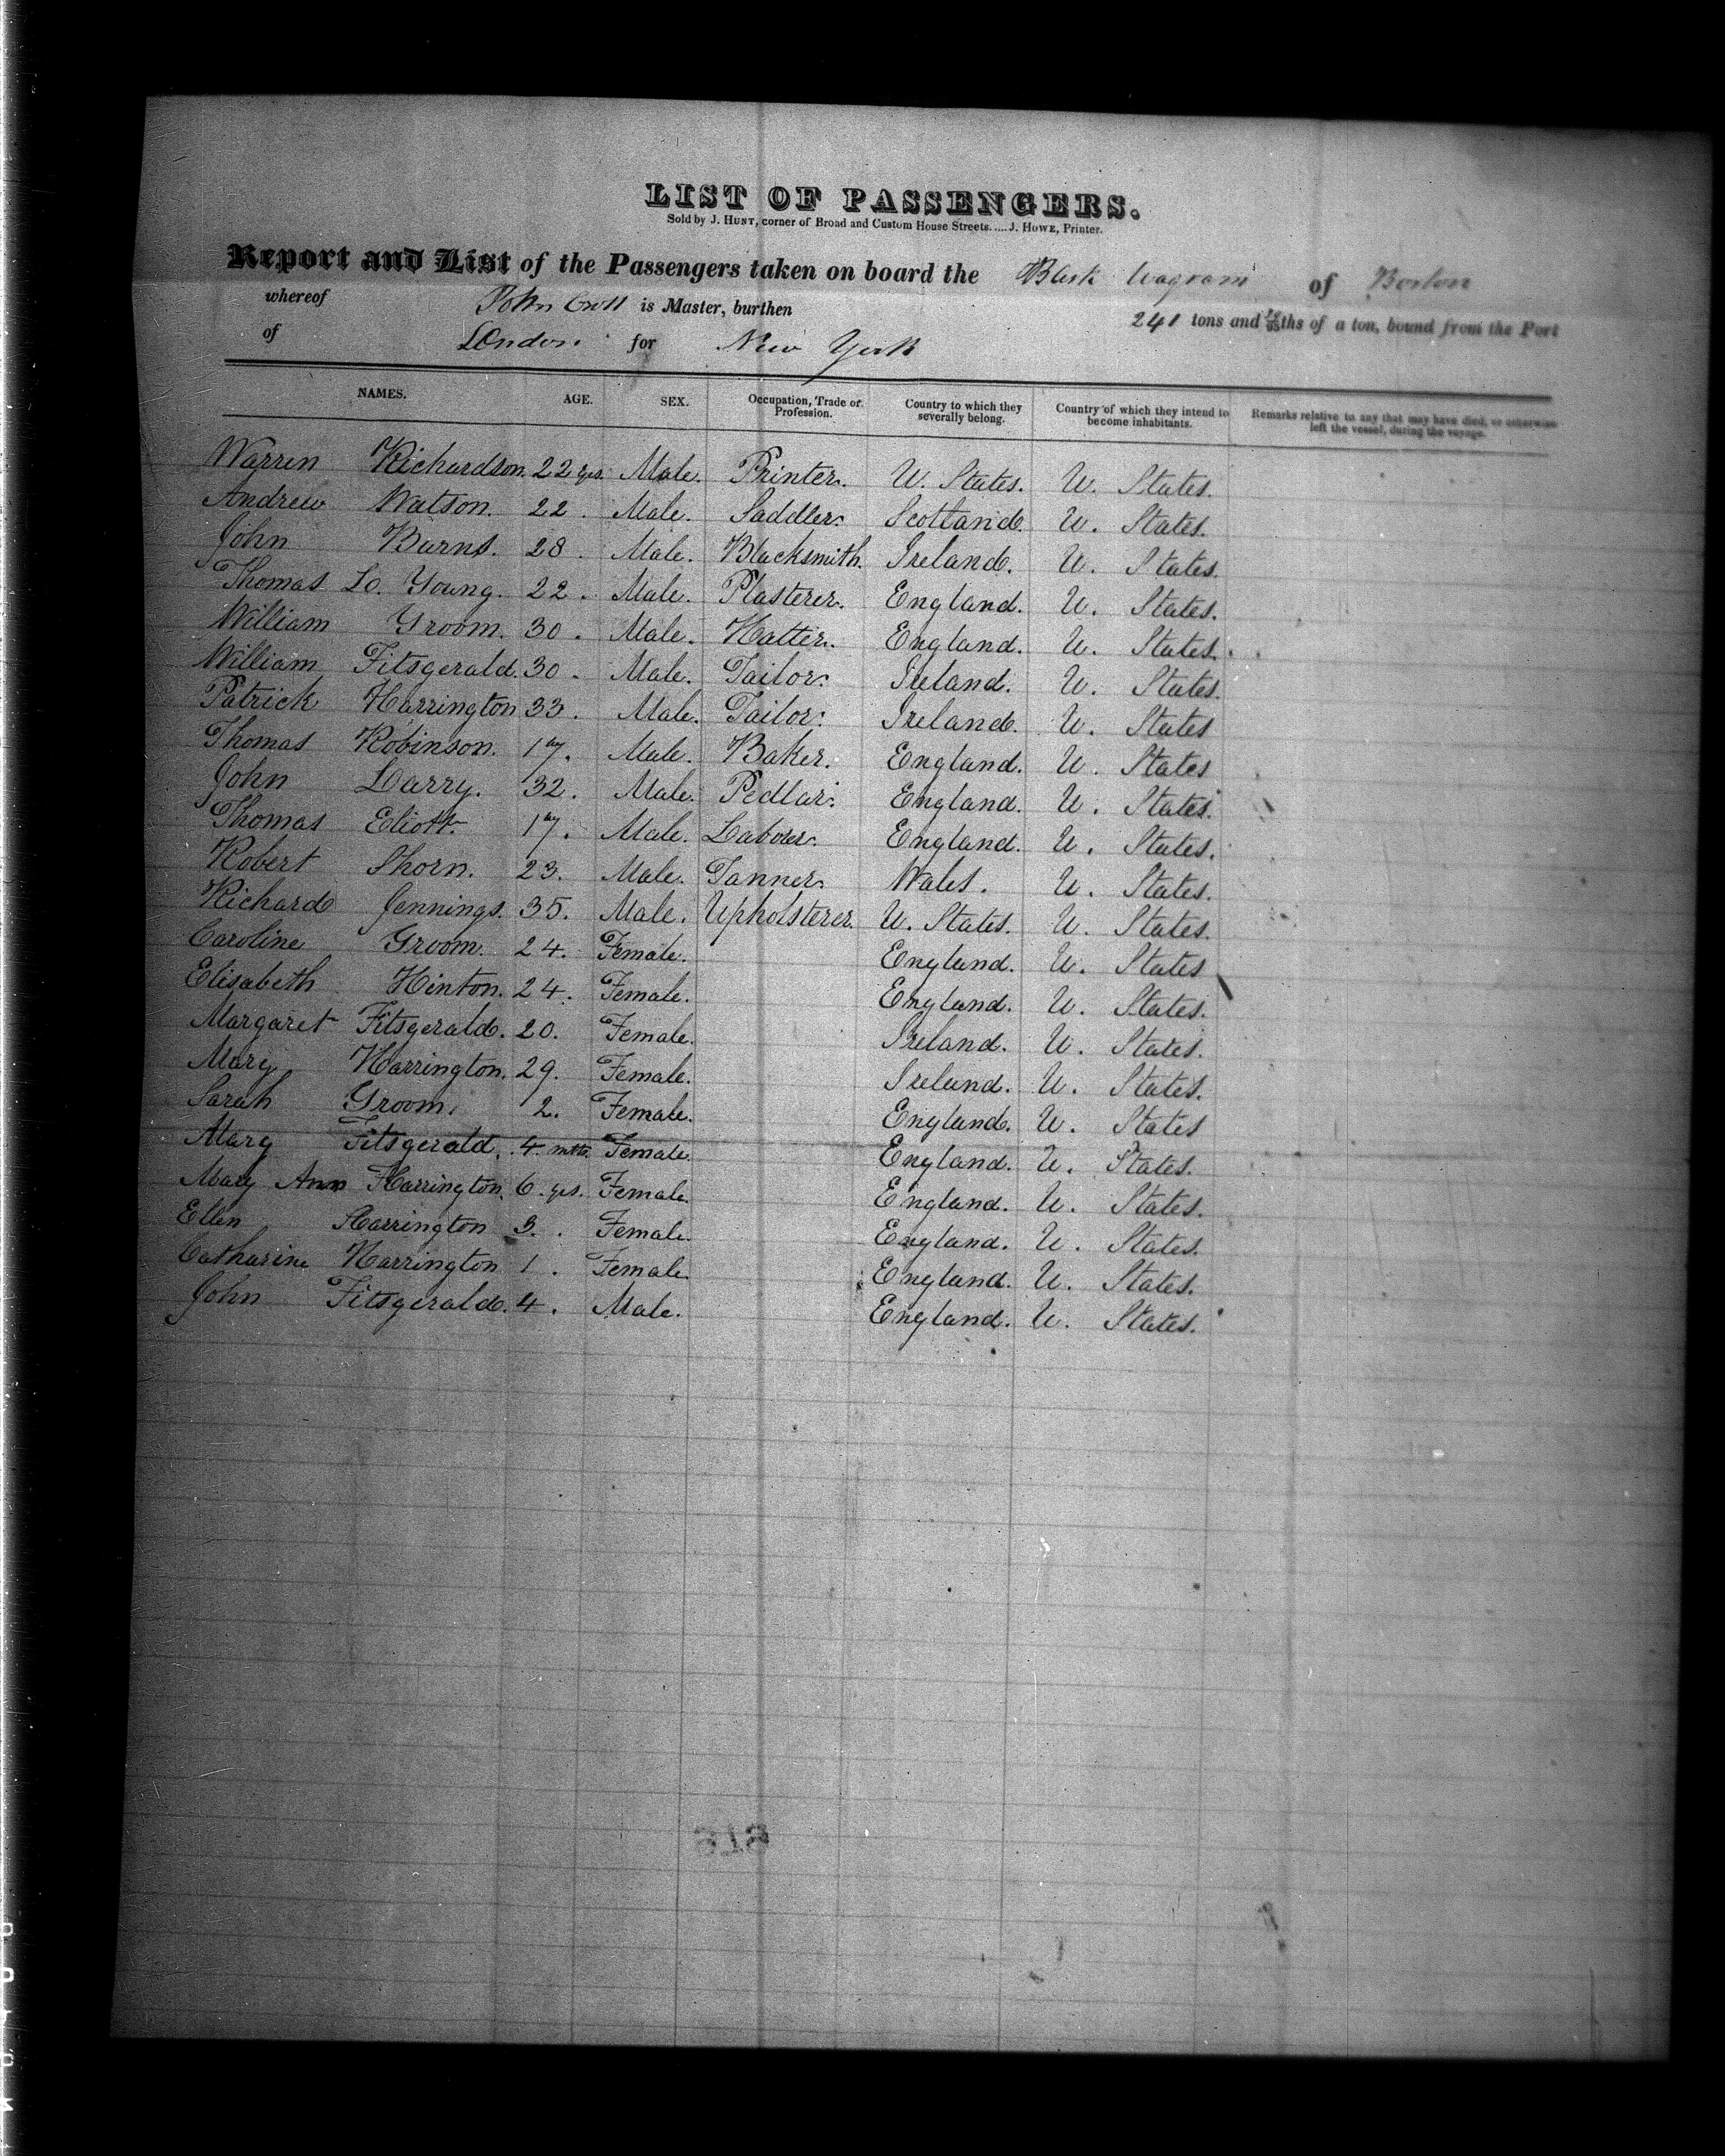 LIST OF PASSENGERS.
Sold by J. HUNT, corner of Broad and Custom House Streets.....J. HOWE, Printer.
Report and List of the Passengers taken on board the Bark Wagram of Boston
whereof John is Master, burthen 241 tons and ths of a ton, bound from the Port
of London for New York
NAMES. AGE. SEX. Occupation, Trade or Profession. Country to which they severally belong. Country of which they intend to become inhabitants. Remarks relative to any that may have died, or otherwise left the vessel, during the voyage.
Warren Richardson. 22 yrs. Male. Printer. U. States. U. States.
Andrew Watson. 22. Male. Saddler. Scotland. U. States.
John Burns. 28. Male. Blacksmith. Ireland. U. States.
Thomas Lo. Young. 22. Male. Plasterer. England. U. States.
William Groom. 30. Male. Hatter. England. U. States.
William Fitsgerald. 30. Male. Tailor. Ireland. U. States.
Patrick Harrington 33. Male. Tailor. Ireland. U. States
Thomas Robinson. 17. Male. Baker. England. U. States
John Larry. 32. Male. Pedlar. England. U. States.
Thomas Eliott. 17. Male. Laborer. England. U. States.
Robert Shorn. 23. Male. Tanner. Wales. U. States.
Richard Jennings. 35. Male. Upholsterer. U. States. U. States.
Caroline Groom. 24. Female. England. U. States
Elisabeth Hinton. 24. Female. England. U. States.
Margaret Fitsgerald. 20. Female. Ireland. U. States.
Mary Harrington. 29. Female. Ireland. U. States.
Sarah Groom. 2. Female. England. U. States
Mary Fitsgerald. 4 mths. Female. England. U. States.
Mary Ann Harrington. 6 yrs. Female. England. U. States.
Ellen Harrington 3. Female. England. U. States.
Catharine Harrington 1. Female. England. U. States.
John Fitsgerald. 4. Male. England. U. States.